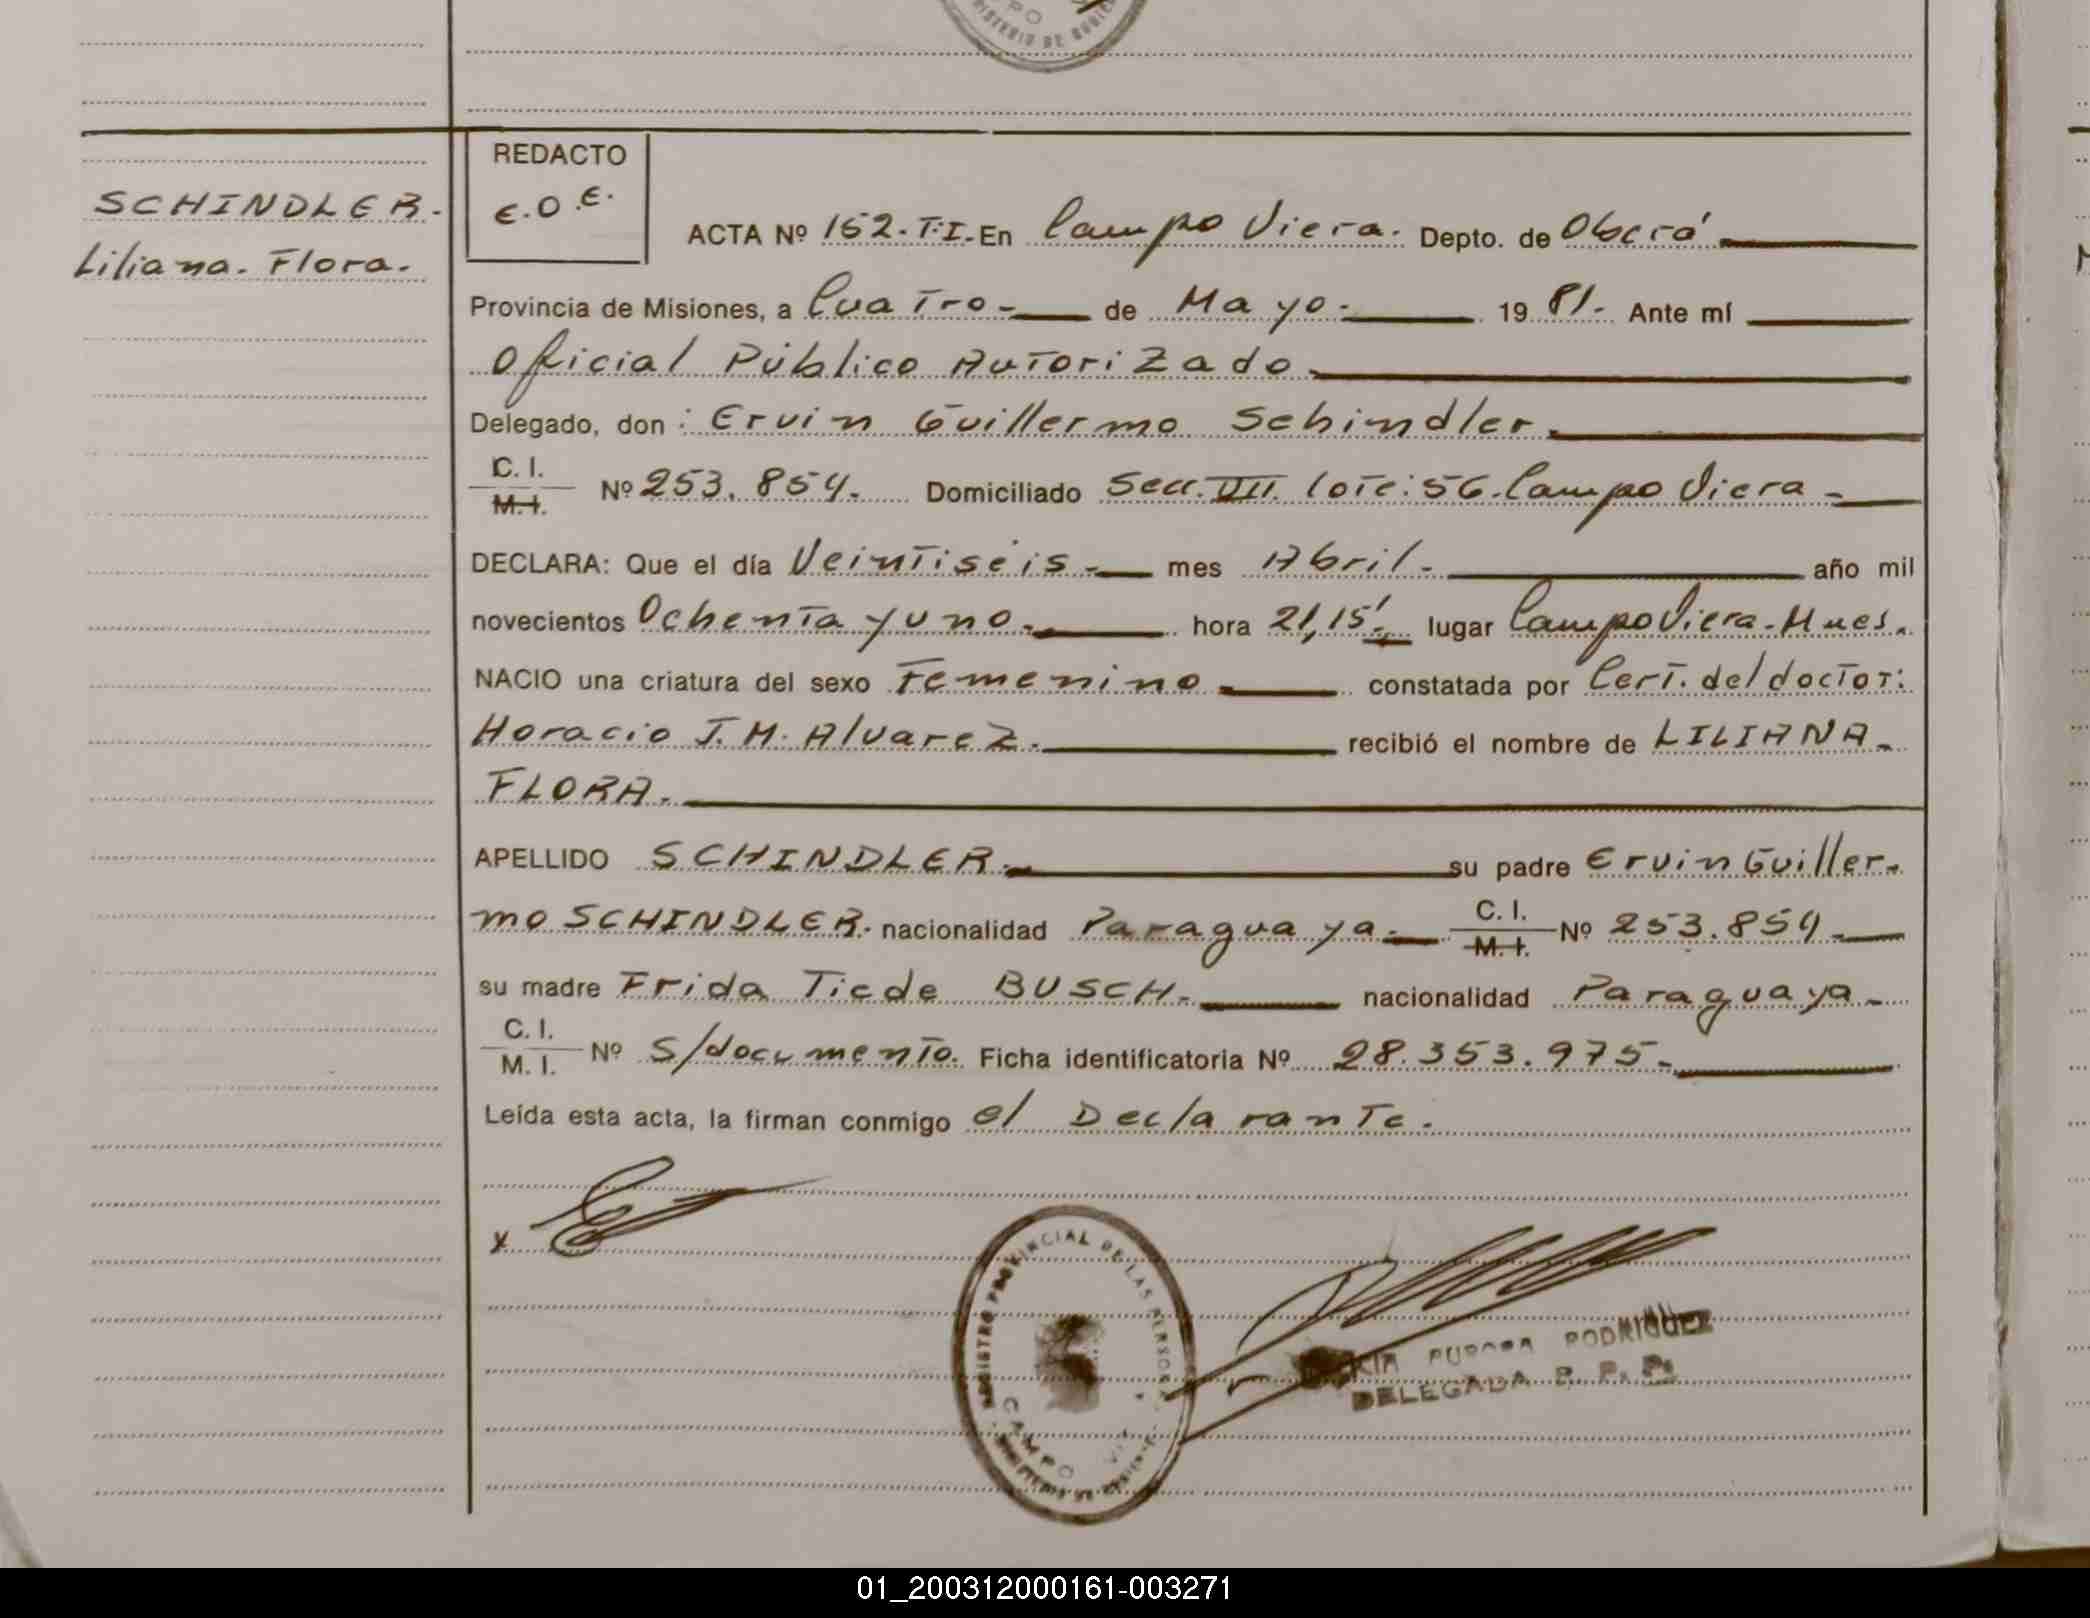 SCHINDLER.
Liliana. Flora.
REDACTO
E.O.E.
ACTA Nº 152.T.I. En Campo Viera. Depto. de Oberá
Provincia de Misiones, a Cuatro. de Mayo. 19 81. Ante mí
Oficial Público Autorizado.
Delegado, don: Ervin Guillermo Schindler.
C. I.
M. I. Nº 253.854. Domiciliado Secc. VII. lote: 56. Campo Viera
DECLARA: Que el día Veintiséis. mes Abril. año mil
novecientos Ochenta y uno. hora 21,15'. lugar Campo Viera. Mnes.
NACIO una criatura del sexo Femenino constatada por Cert. del doctor:
Horacio J.M. Alvarez. recibió el nombre de LILIANA
FLORA.
APELLIDO SCHINDLER. su padre Ervin Guiller-
mo SCHINDLER. nacionalidad Paraguaya. C. I.
M. I. Nº 253.854.
su madre Frida Tiede BUSCH. nacionalidad Paraguaya
C. I.
M. I. Nº S/documento. Ficha identificatoria Nº 28.353.975.
Leída esta acta, la firman conmigo el Declarante.
x
REGISTRO PROVINCIAL DE LAS PERSONAS
CAMPO
RODRIGUEZ
DELEGADA R. P. P.
01_200312000161-003271